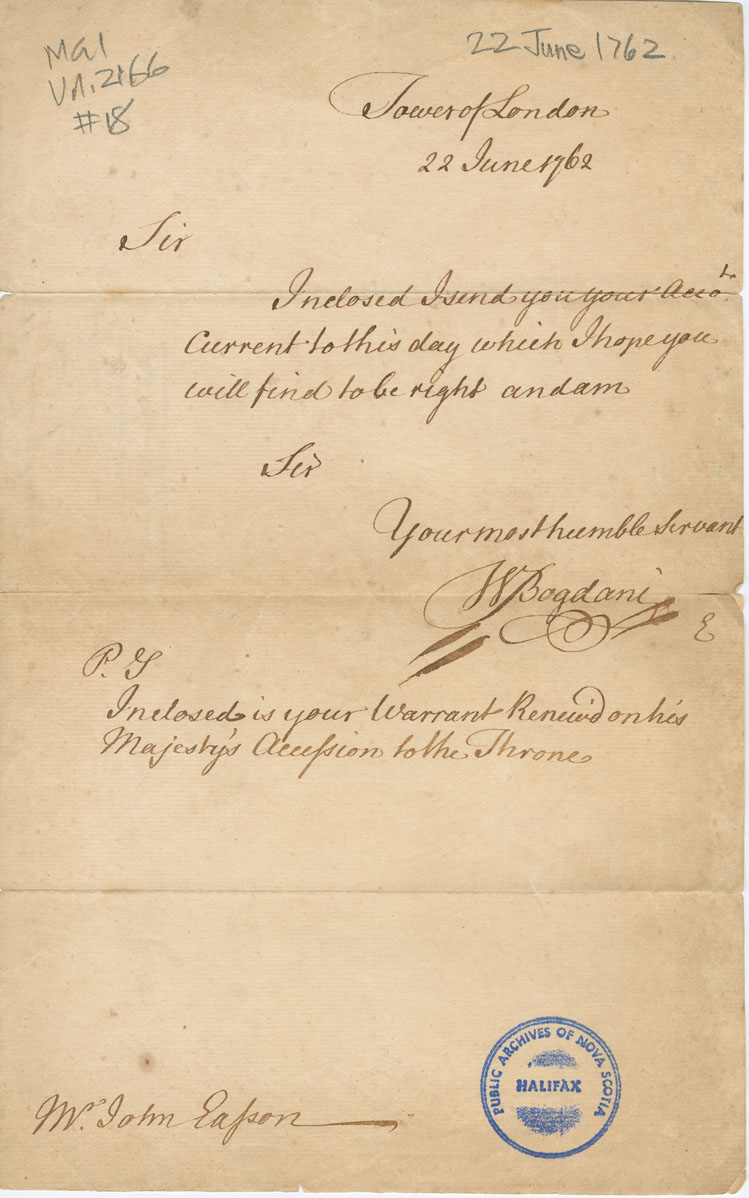 MG1
Vol. 2166
#18
22 June 1762
Tower of London
22 June 1762
Sir
Inclosed I send you your Acco.t
Current to this day which I hope you
will find to be right and am
Sir
Your most humble Servant
W Bogdani
P. S
Inclosed is your Warrant Renew'd on his
Majesty's Acceſsion to the Throne
Mr John Eaſson
PUBLIC ARCHIVES OF NOVA SCOTIA
HALIFAX